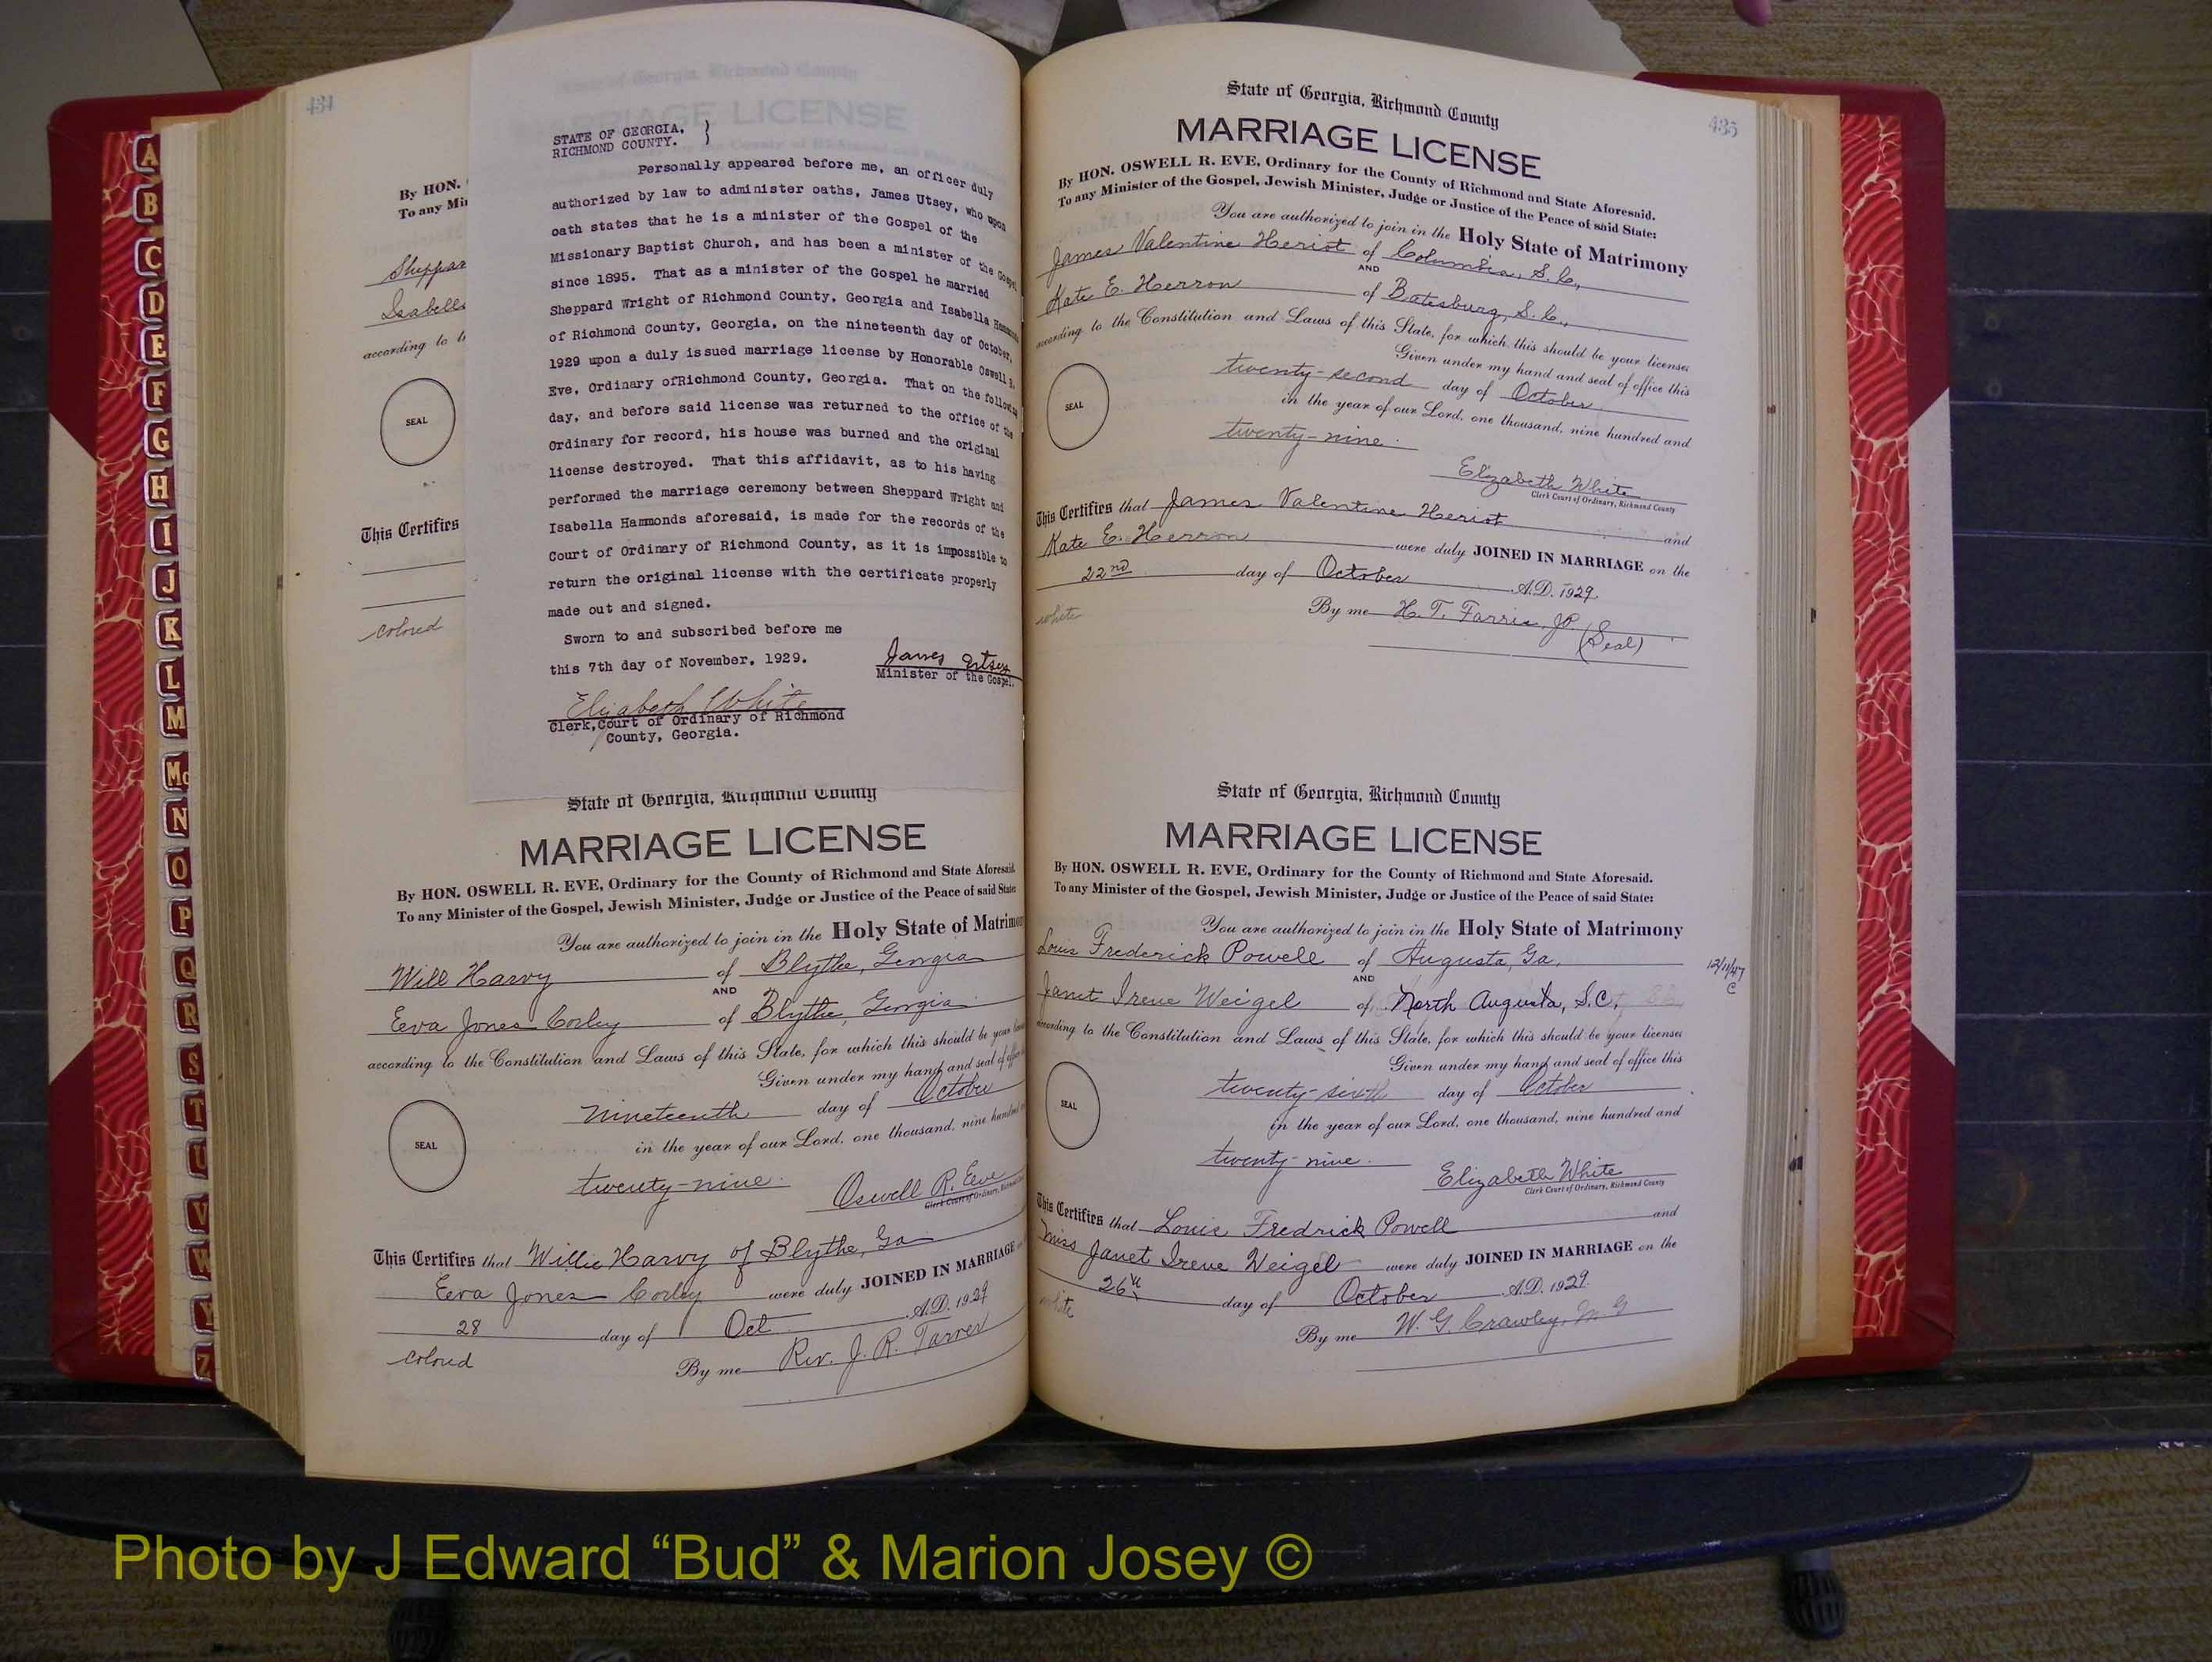 434
By HON.
To any Mi
Sheppar
Isabell
according to t
SEAL
This Certifies
colored
STATE OF GEORGIA,
RICHMOND COUNTY. }
Personally appeared before me, an officer duly
authorized by law to administer oaths, James Utsey, who upon
oath states that he is a minister of the Gospel of the
Missionary Baptist Church, and has been a minister of the Gospel
since 1895. That as a minister of the Gospel he married
Sheppard Wright of Richmond County, Georgia and Isabella Hammonds
of Richmond County, Georgia, on the nineteenth day of October,
1929 upon a duly issued marriage license by Honorable Oswell R.
Eve, Ordinary ofRichmond County, Georgia. That on the following
day, and before said license was returned to the office of the
Ordinary for record, his house was burned and the original
license destroyed. That this affidavit, as to his having
performed the marriage ceremony between Sheppard Wright and
Isabella Hammonds aforesaid, is made for the records of the
Court of Ordinary of Richmond County, as it is impossible to
return the original license with the certificate properly
made out and signed.
Sworn to and subscribed before me
this 7th day of November, 1929.
James Utsey
Minister of the Gospel.
Elizabeth White
Clerk,Court of Ordinary of Richmond
County, Georgia.
State of Georgia, Richmond County
MARRIAGE LICENSE
By HON. OSWELL R. EVE, Ordinary for the County of Richmond and State Aforesaid.
To any Minister of the Gospel, Jewish Minister, Judge or Justice of the Peace of said State:
You are authorized to join in the Holy State of Matrimony
Will Harvy of Blythe, Georgia
AND
Eeva Jones Corley of Blythe, Georgia
according to the Constitution and Laws of this State, for which this should be your
Given under my hand and seal of office
nineteenth day of October
SEAL
in the year of our Lord, one thousand, nine hundred
twenty-nine.
Oswell R. Eve
Clerk Court of Ordinary, Richmond
This Certifies that Willie Harvy of Blythe, Ga
Eeva Jones Corley were duly JOINED IN MARRIAGE
28 day of Oct A.D. 1929
colored
By me Rev. J. R. Tarver
435
State of Georgia, Richmond County
MARRIAGE LICENSE
By HON. OSWELL R. EVE, Ordinary for the County of Richmond and State Aforesaid.
To any Minister of the Gospel, Jewish Minister, Judge or Justice of the Peace of said State:
You are authorized to join in the Holy State of Matrimony
James Valentine Heriot of Columbia, S.C.,
AND
Kate E. Herron of Batesburg, S.C.,
according to the Constitution and Laws of this State, for which this should be your license
Given under my hand and seal of office this
twenty-second day of October
SEAL
in the year of our Lord, one thousand, nine hundred and
twenty-nine.
Elizabeth White
Clerk Court of Ordinary, Richmond County
This Certifies that James Valentine Heriot and
Kate E. Herron were duly JOINED IN MARRIAGE on the
22nd day of October A.D. 1929.
white
By me H. T. Farris, JP.
(Seal)
State of Georgia, Richmond County
MARRIAGE LICENSE
By HON. OSWELL R. EVE, Ordinary for the County of Richmond and State Aforesaid.
To any Minister of the Gospel, Jewish Minister, Judge or Justice of the Peace of said State:
You are authorized to join in the Holy State of Matrimony
Louis Frederick Powell of Augusta, Ga.
AND
12/11/47
C
Janet Irene Weigel of North Augusta, S.C.
according to the Constitution and Laws of this State, for which this should be your license
Given under my hand and seal of office this
twenty-sixth day of October
SEAL
in the year of our Lord, one thousand, nine hundred and
twenty-nine.
Elizabeth White
Clerk Court of Ordinary, Richmond County
This Certifies that Louis Fredrick Powell and
Miss Janet Irene Weigel were duly JOINED IN MARRIAGE on the
26th day of October A.D. 1929.
white
By me W. G. Crawley, M G
A
B
C
D
E
F
G
H
I
J
K
L
M
Mc
N
O
P
Q
R
S
T
U
V
W
Y
Z
Photo by J Edward “Bud” & Marion Josey ©